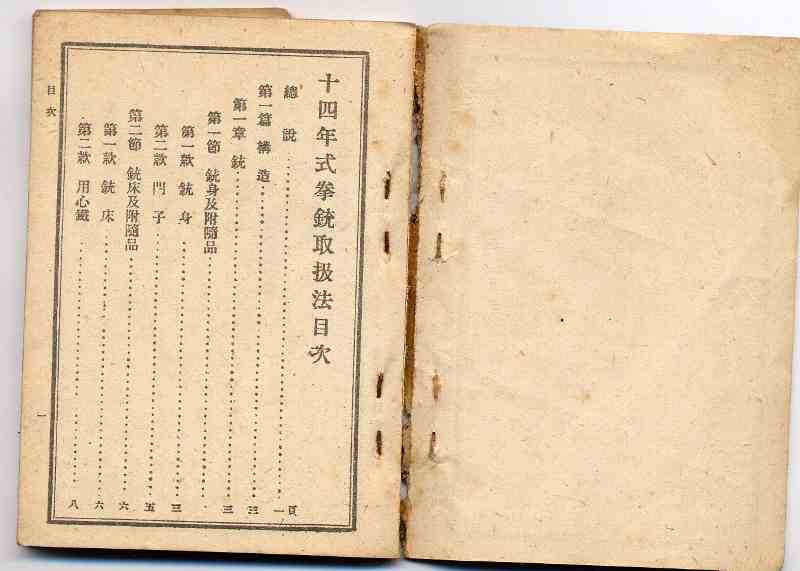 十四年式拳銃取扱法目次
總說……一頁
第一篇 構造……三
第一章 銃……三
第一節 銃身及附隨品……
第一款 銃身……三
第二款 閂子……五
第二節 銃床及附隨品……六
第一款 銃床……六
第二款 用心鐵……八
目次
一